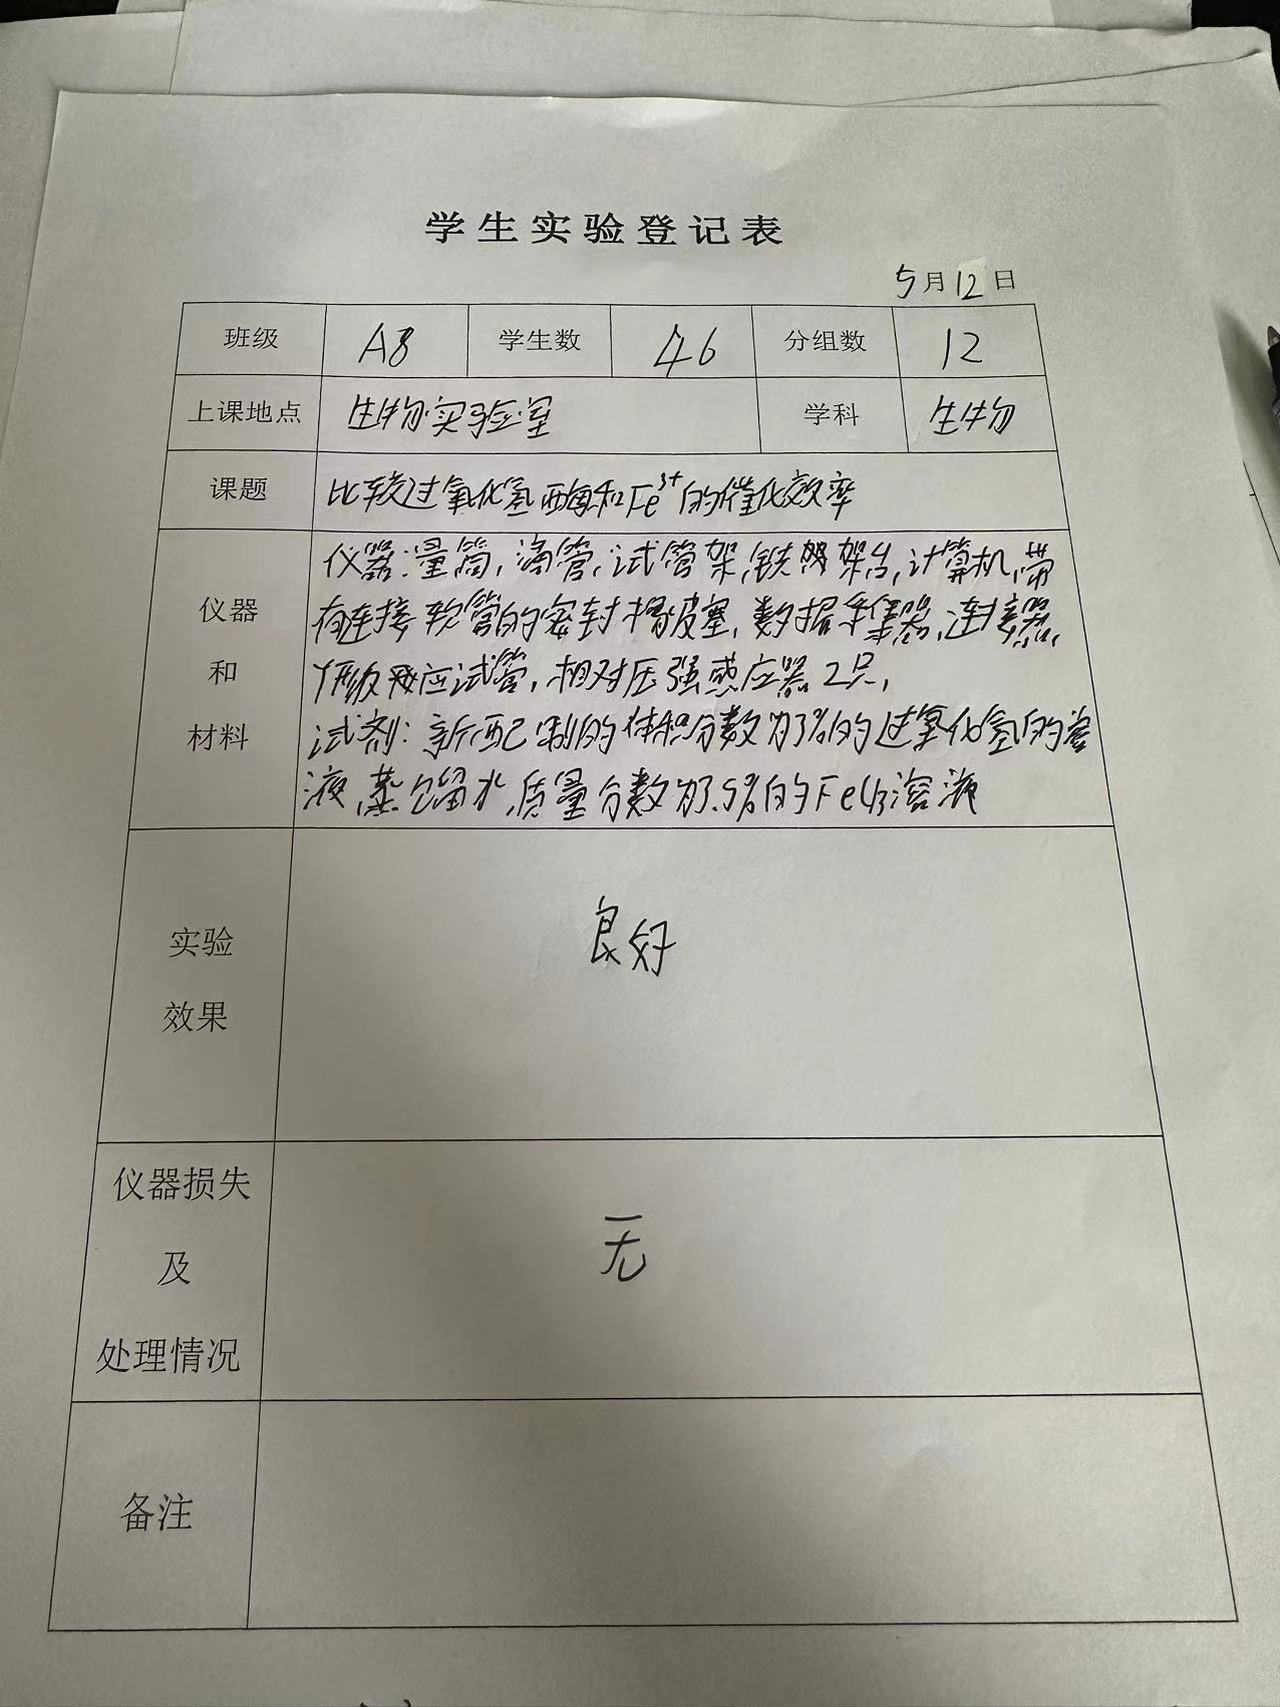 学生实验登记表
5月12日
班级 A8 学生数 46 分组数 12
上课地点 生物实验室 学科 生物
课题 比较过氧化氢酶和Fe³⁺的催化效率
仪器和材料
仪器:量筒,滴管,试管架,铁架台,计算机,带
有连接软管的密封橡皮塞,数据采集器,连接器,
Y形反应试管,相对压强感应器2只,
试剂:新配制的体积分数为3%的过氧化氢的溶
液,蒸馏水,质量分数为3.5%的FeCl₃溶液
实验效果 良好
仪器损失及处理情况 无
备注